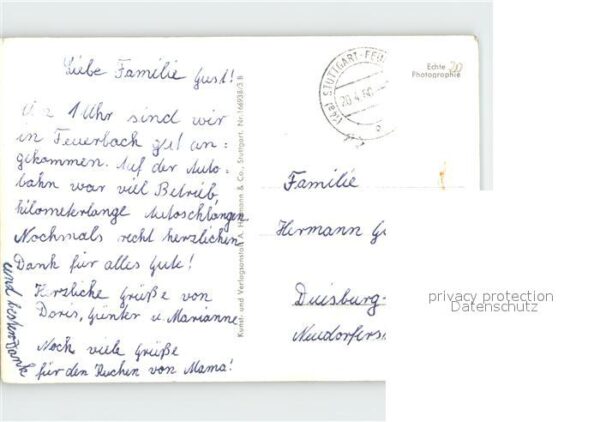 Liebe Familie Gust!
Um 1 Uhr sind wir
in Feuerbach gut an=
gekommen. Auf der Auto=
bahn war viel Betrieb,
kilometerlange Autoschlangen.
Nochmals recht herzlichen
Dank für alles Gute!
Herzliche Grüße von
Doris, Günter u. Marianne
Noch viele Grüße
für den Kuchen von Mama!
und besten Dank
Kunst- und Verlagsanstalt A. & Co., Stuttgart. Nr.
STUTTGART-FEU
20.4.60
Echte
Photographie
20
Familie
Hermann Gu
Duisburg-
Neudorfers
privacy protection
Datenschutz